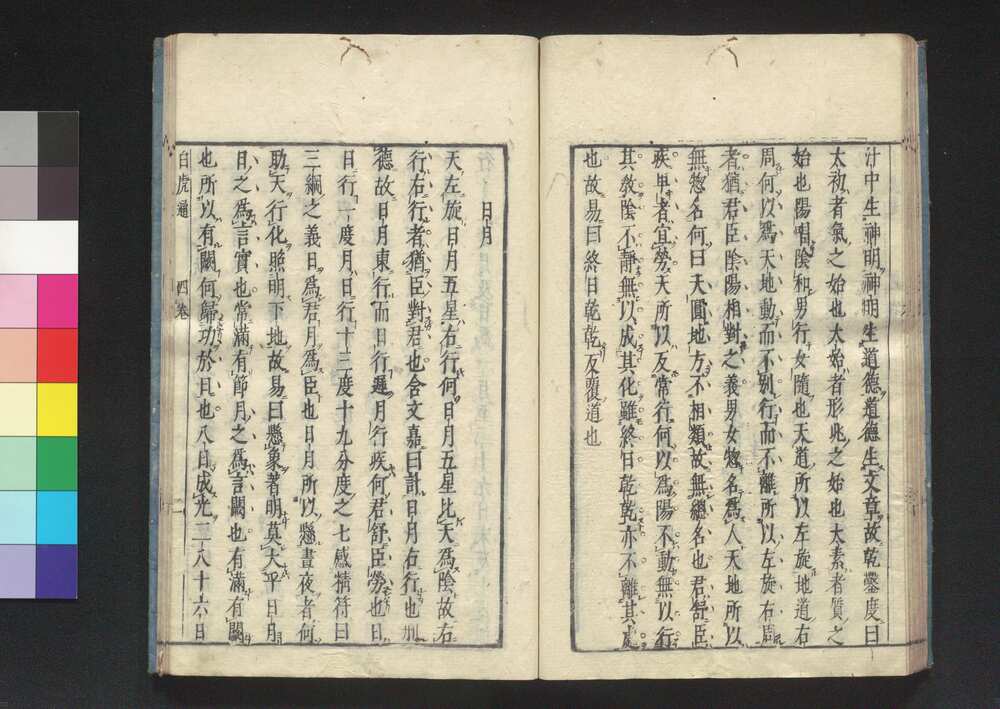 汁中生神明神明生道德道德生文章故乾鑿度曰
太初者氣之始也太始者形兆之始也太素者質之
始也陽唱陰和男行女隨也天道所以左旋地道右
周何以爲天地動而不別行而不離所以左旋右周
者猶君臣陰陽相對之義男女惣名爲人天地所以
無惣名何曰天圓地方不相類故無緫名也君舒臣
疾卑者宜勞天所以反常行何以爲陽不動無以行
其敎陰不靜無以成其化雖終日乾乾亦不離其處
也故易曰終日乾乾反覆道也
日月
天左旋日月五星右行何日月五星比天爲陰故右
行右行者猶臣對君也含文嘉曰計日月右行也刑
德故日月東行而日行遲月行疾何君舒臣勞也日
日行一度月日行十三度十九分度之七感精符曰
三綱之義日爲君月爲臣也日月所以懸晝夜者何
助天行化照明下地故易曰懸象著明莫大乎日月
日之爲言實也常滿有節月之爲言闕也有滿有闕
也所以有闕何歸功於日也八日成光二八十六日
白虎通 四卷 二